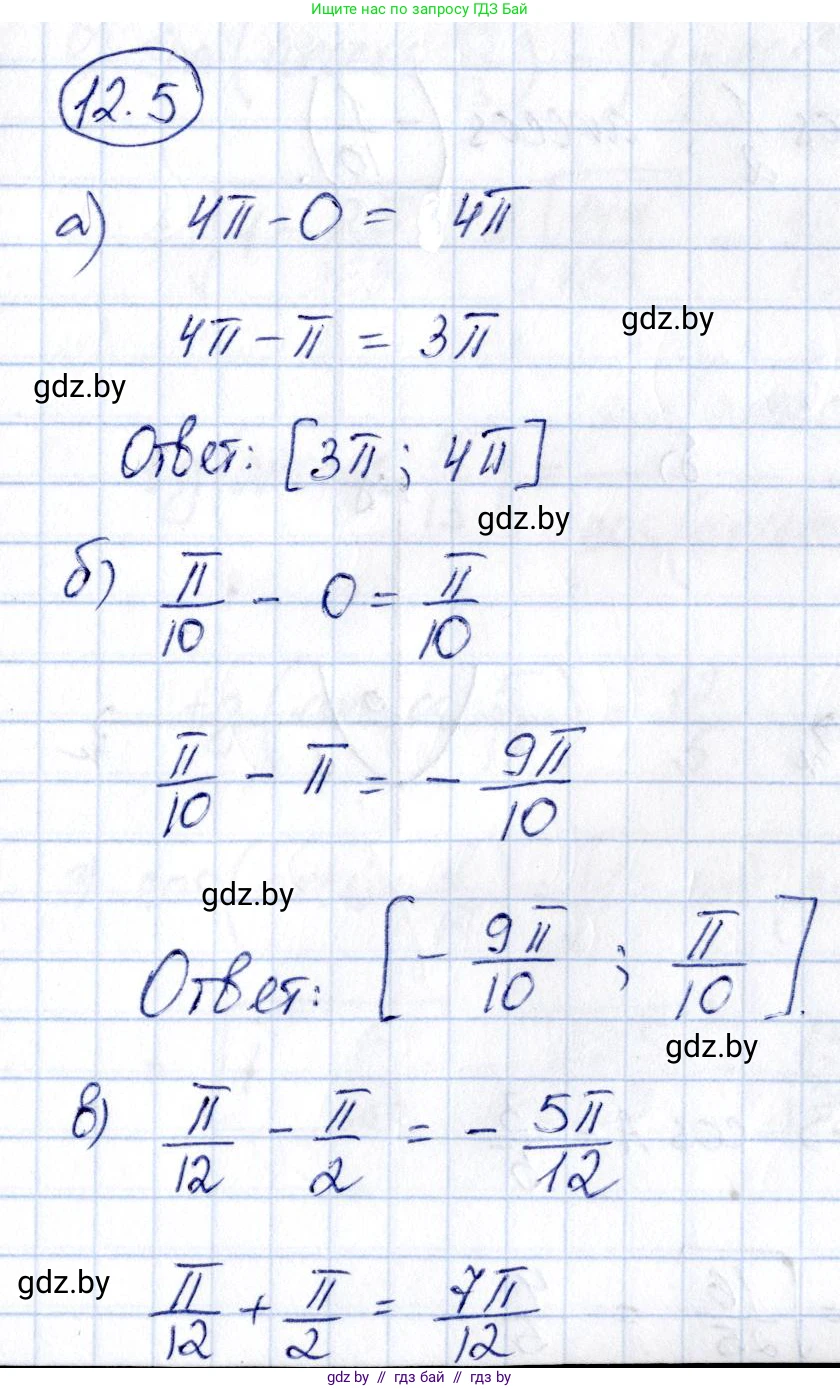 Ищите нас по запросу ГДЗ Бай
12.5
а) 4π - 0 = 4π
4π - π = 3π
gdz.by
gdz.by
Ответ: [3π; 4π]
gdz.by
б) π/10 - 0 = π/10
π/10 - π = - 9π/10
gdz.by
Ответ: [- 9π/10 ; π/10].
gdz.by
в) π/12 - π/2 = - 5π/12
gdz.by
π/12 + π/2 = 7π/12
gdz.by // гдз бай // gdz.by